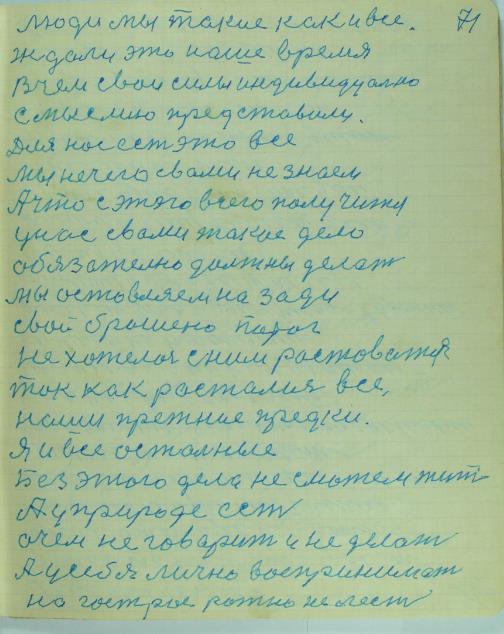 71
люди мы такие как и все.
ждали это наше время
В чем свои силы индивидуално
с мыслию представили.
Для нас ест это все
мы нечего с вами не знаем
А что с этого всего получится
у нас с вами такое дело
обязателно должны делат
мы оставляем на зади
свой брошено порог
не хотелос с ним растоватся
так как расталис все,
наши прежние предки.
Я и все осталные
Без этого дела не сможем жит
А у природе ест
о чем не говорит и не делат
А у себя лично воспринимат
на гострое рожно не лест